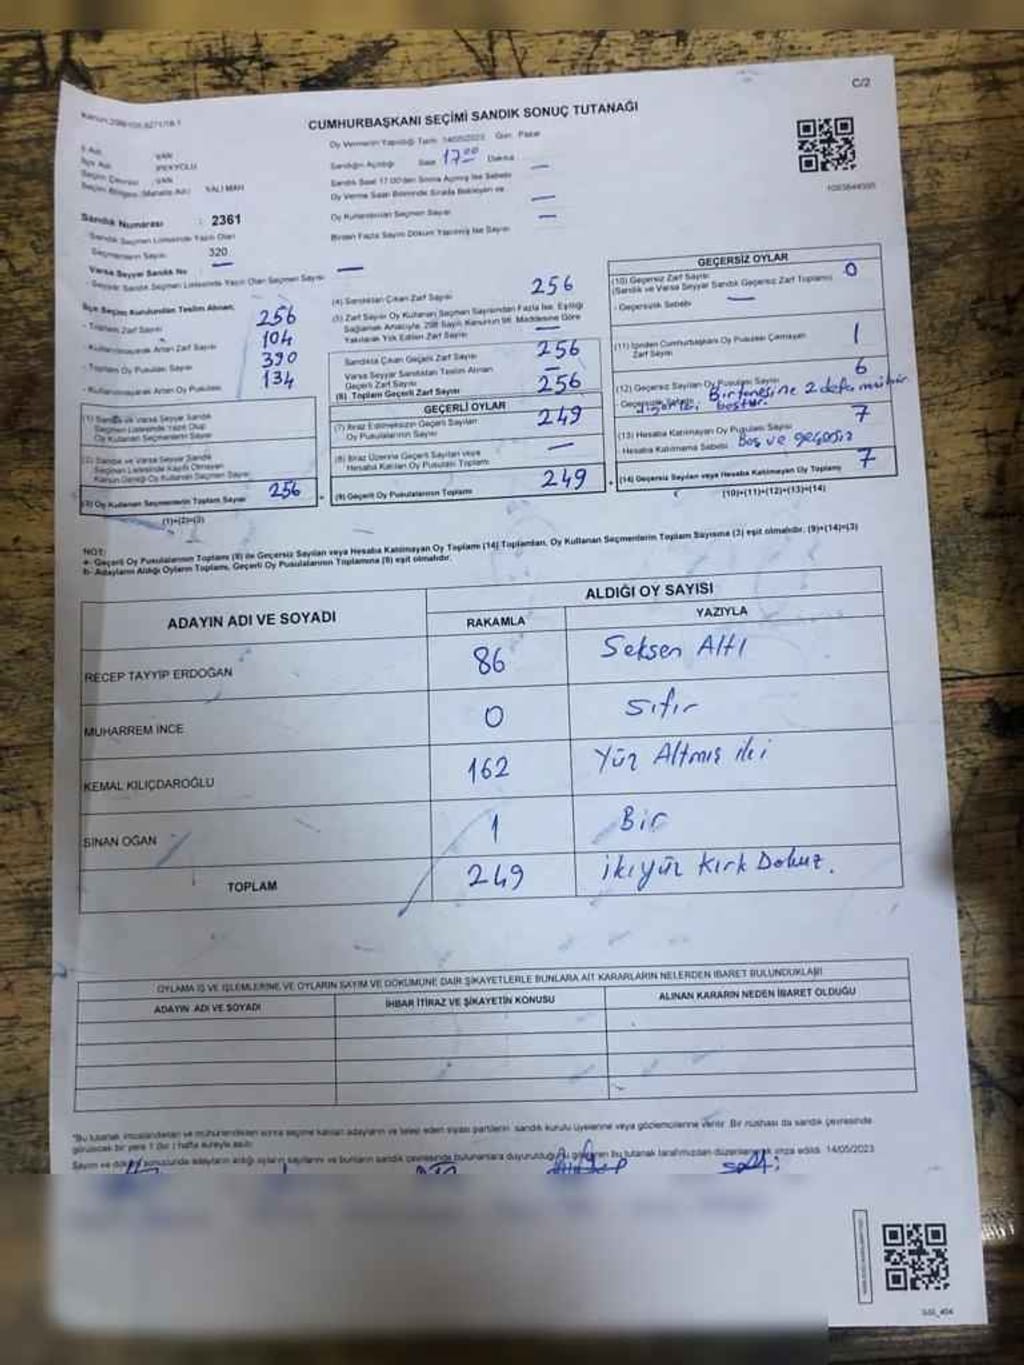 C/2
CUMHURBAŞKANI SEÇİMİ SANDIK SONUÇ TUTANAĞI
Oy Vermenin Yapıldığı Tarih 14/05/2023 Gün Pazar
VAN
İPEKYOLU
VAN
YALI MAH
Sandığın Açıldığı Saat 17 00 Dakika —
Sandık Saat 17.00'den Sonra Açılmış İse Sebebi
Oy Verme Saati Bitiminde Sırada Bekleyen ve
Oy Kullandırılan Seçmen Sayısı —
Birden Fazla Sayım Döküm Yapılmış İse Sayısı —
Sandık Numarası : 2361
Sandık Seçmen Listesinde Yazılı Olan
Seçmenlerin Sayısı 320
Varsa Seyyar Sandık No —
- Seyyar Sandık Seçmen Listesinde Yazılı Olan Seçmen Sayısı —
İlçe Seçim Kurulundan Teslim Alınan,
- Toplam Zarf Sayısı 256
- Kullanılmayarak Artan Zarf Sayısı 104
- Toplam Oy Pusulası Sayısı 390
- Kullanılmayarak Artan Oy Pusulası 134
(1) Sandık ve Varsa Seyyar Sandık
Seçmen Listesinde Yazılı Olup
Oy Kullanan Seçmenlerin Sayısı
(2) Sandık ve Varsa Seyyar Sandık
Seçmen Listesinde Kayıtlı Olmayan
Kanun Gereği Oy Kullanan Seçmen Sayısı
(3) Oy Kullanan Seçmenlerin Toplam Sayısı 256
(1)+(2)=(3)
(4) Sandıktan Çıkan Zarf Sayısı 256
(5) Zarf Sayısı Oy Kullanan Seçmen Sayısından Fazla İse, Eşitliği
Sağlamak Amacıyla, 298 Sayılı Kanunun 98. Maddesine Göre
Yakılarak Yok Edilen Zarf Sayısı —
Sandıkta Çıkan Geçerli Zarf Sayısı 256
Varsa Seyyar Sandıktan Teslim Alınan
Geçerli Zarf Sayısı —
(6) Toplam Geçerli Zarf Sayısı 256
GEÇERLİ OYLAR
(7) İtiraz Edilmeksizin Geçerli Sayılan
Oy Pusulalarının Sayısı 249
(8) İtiraz Üzerine Geçerli Sayılan veya
Hesaba Katılan Oy Pusulası Toplamı —
(9) Geçerli Oy Pusulalarının Toplamı 249
GEÇERSİZ OYLAR
(10) Geçersiz Zarf Sayısı
(Sandık ve Varsa Seyyar Sandık Geçersiz Zarf Toplamı) 0
- Geçersizlik Sebebi —
(11) İçinden Cumhurbaşkanı Oy Pusulası Çıkmayan
Zarf Sayısı 1
(12) Geçersiz Sayılan Oy Pusulası Sayısı 6
Geçersizlik Sebebi Bir tanesine 2 defa mühür
diğerleri boştur.
(13) Hesaba Katılmayan Oy Pusulası Sayısı 7
Hesaba Katılmama Sebebi Boş ve geçersiz
(14) Geçersiz Sayılan veya Hesaba Katılmayan Oy Toplamı 7
(10)+(11)+(12)+(13)=(14)
NOT:
a- Geçerli Oy Pusulalarının Toplamı (9) ile Geçersiz Sayılan veya Hesaba Katılmayan Oy Toplamı (14) Toplamları, Oy Kullanan Seçmenlerin Toplam Sayısına (3) eşit olmalıdır. (9)+(14)=(3)
b- Adayların Aldığı Oyların Toplamı, Geçerli Oy Pusulalarının Toplamına (9) eşit olmalıdır.
ADAYIN ADI VE SOYADI
ALDIĞI OY SAYISI
RAKAMLA YAZIYLA
RECEP TAYYİP ERDOĞAN 86 Seksen Altı
MUHARREM İNCE 0 Sıfır
KEMAL KILIÇDAROĞLU 162 Yüz Altmış iki
SİNAN OĞAN 1 Bir
TOPLAM 249 ikiyüz Kırk Dokuz.
OYLAMA İŞ VE İŞLEMLERİNE VE OYLARIN SAYIM VE DÖKÜMÜNE DAİR ŞİKAYETLERLE BUNLARA AİT KARARLARIN NELERDEN İBARET BULUNDUKLARI
ADAYIN ADI VE SOYADI İHBAR İTİRAZ VE ŞİKAYETİN KONUSU ALINAN KARARIN NEDEN İBARET OLDUĞU
"Bu tutanak imzalandıktan ve mühürlendikten sonra seçime katılan adayların ve talep eden siyasi partilerin sandık kurulu üyelerine veya gözlemcilerine verilir. Bir nüshası da sandık çevresinde
görülecek bir yere 1 (bir) hafta süreyle asılır.